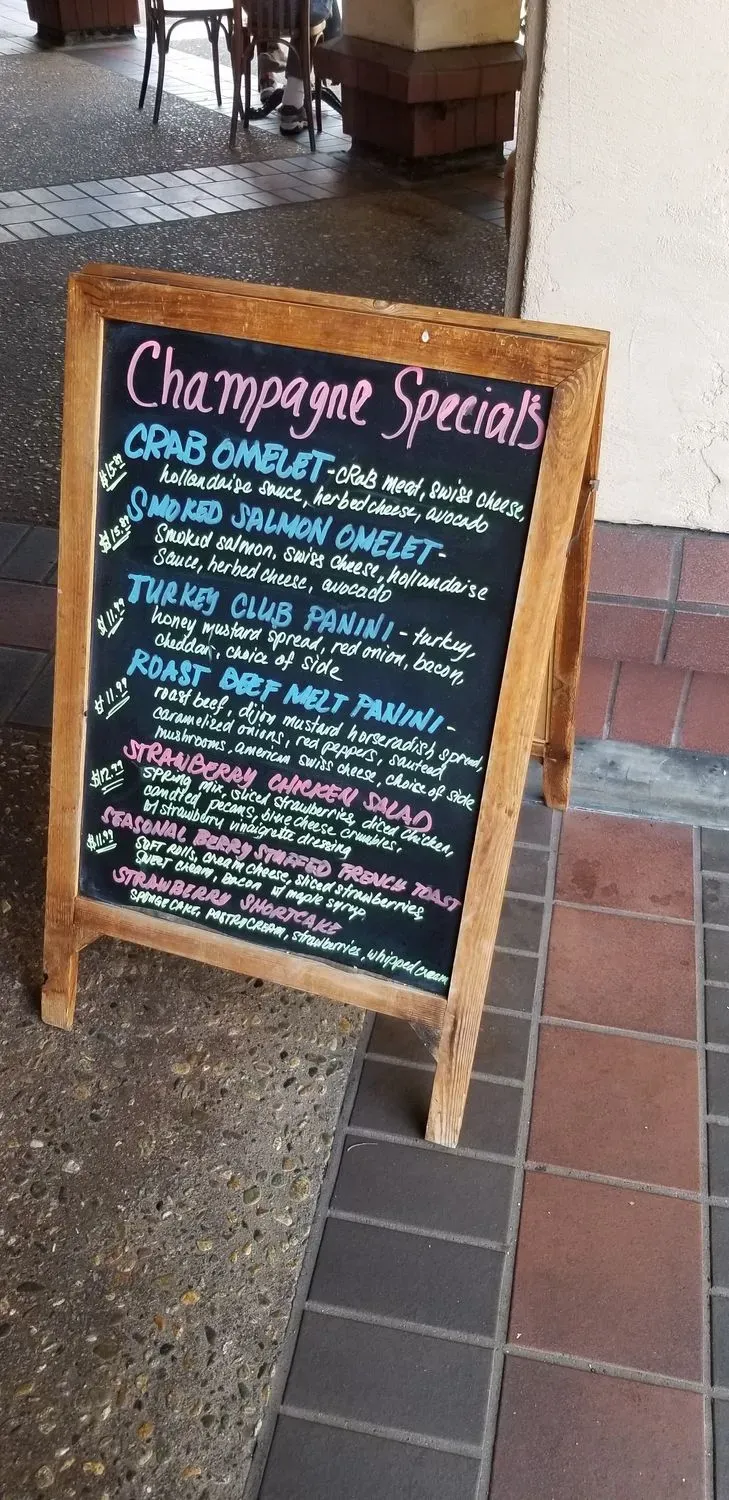 Champagne Special's
CRAB OMELET - CRAB meat, swiss cheese,
hollandaise sauce, herbed cheese, avocado
SMOKED SALMON OMELET -
Smoked salmon, swiss cheese, hollandaise
sauce, herbed cheese, avocado
$11.99 TURKEY CLUB PANINI - turkey,
honey mustard spread, red onion, bacon,
cheddar, choice of side
ROAST BEEF MELT PANINI -
$11.99 roast beef, dijon mustard horseradish spread,
caramelized onions, red peppers, sauteed
mushrooms, american swiss cheese, choice of side
STRAWBERRY CHICKEN SALAD
$12.99 SPRING MIX, sliced strawberries, diced chicken,
candied pecans, blue cheese crumbles,
w/ strawberry vinaigrette dressing
SEASONAL BERRY STUFFED FRENCH TOAST
$11.99 SOFT ROLLS, cream cheese, sliced strawberries,
SWEET CREAM, BACON w/ maple syrup
STRAWBERRY SHORTCAKE
SPONGE CAKE, CREAM, strawberries, whipped cream